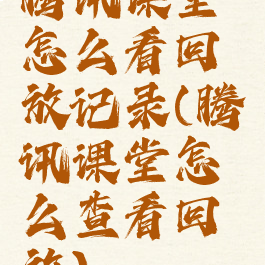 腾讯课堂
怎么看回
放记录(腾
讯课堂怎
么查看回
放)